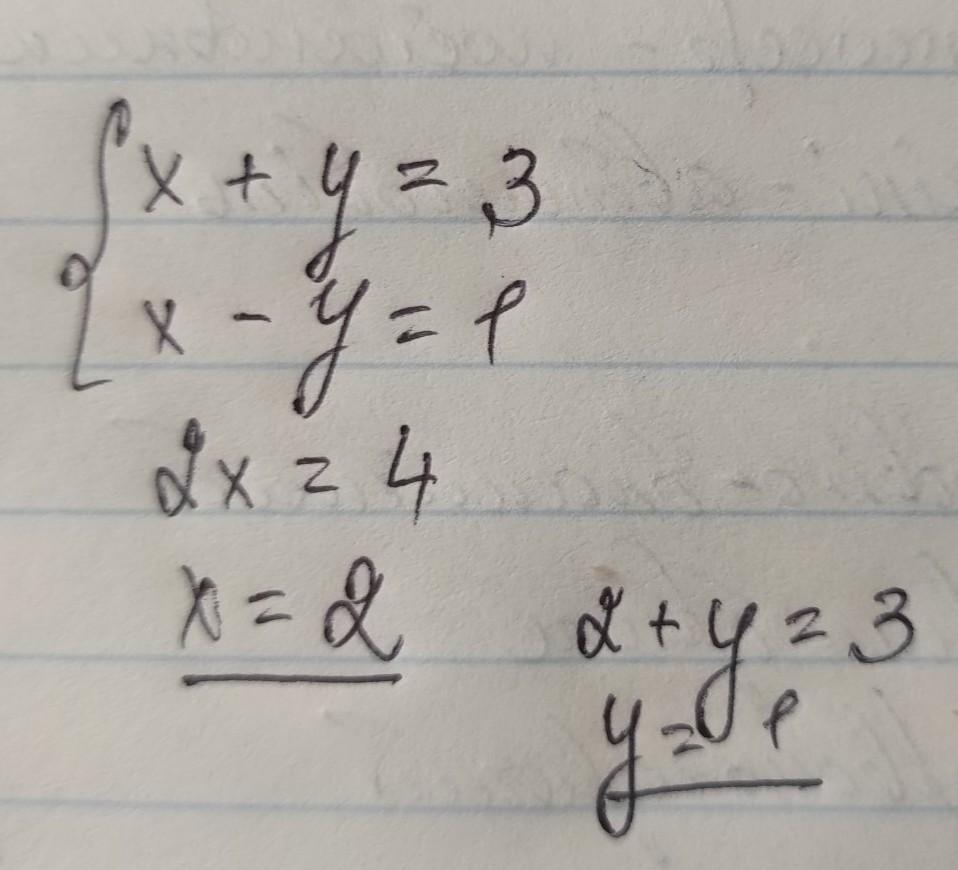 x + y = 3
x - y = 1
2x = 4
x = 2
2 + y = 3
y = 1